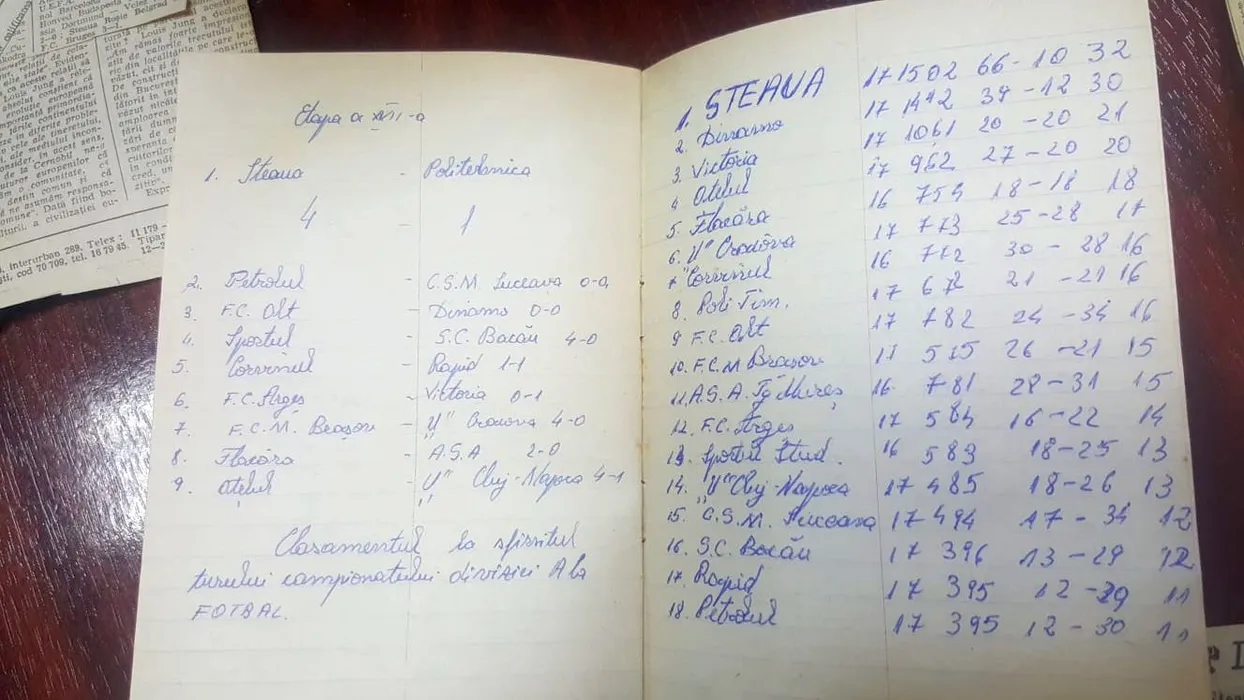 U.E.F.A.
F.C. Bruges 3-1.
Louis Jung a
Interurban 289, Telex : 11 179
cod 70 709, tel. 16 79 45. Tipar
Etapa a XVII-a
1. Steaua - Politehnica
4 - 1
2. Petrolul - C.S.M. Suceava 0-0
3. F.C. Olt - Dinamo 0-0
4. Sportul - S.C. Bacău 4-0
5. Corvinul - Rapid 1-1
6. F.C. Argeș - Victoria 0-1
7. F.C.M. Brașov - "U" Craiova 4-0
8. Flacăra - A.S.A 2-0
9. Oțelul - "U" Cluj-Napoca 4-1
Clasamentul la sfîrșitul
turului campionatului diviziei A la
FOTBAL.
1. STEAUA 17 1502 66-10 32
2. Dinamo 17 1442 39-12 30
3. Victoria 17 1061 20-20 21
4 Oțelul 17 962 27-20 20
5. Flacăra 16 754 18-18 18
6. "U" Craiova 17 773 25-28 17
7 "Corvinul 16 772 30-28 16
8. Poli Tim. 17 672 21-21 16
9 F.C. Olt 17 782 24-34 16
10. F.C.M Brașov 17 575 26-21 15
11. A.S.A. Tg Mureș 16 781 28-31 15
12. F.C. Argeș 17 584 16-22 14
13. Sportul Stud. 16 583 18-25 13
14. "U" Cluj-Napoca 17 485 18-26 13
15. C.S.M. Suceava 17 494 17-34 12
16. S.C. Bacău 17 396 13-29 12
17. Rapid 17 395 12-29 11
18. Petrolul 17 395 12-30 11